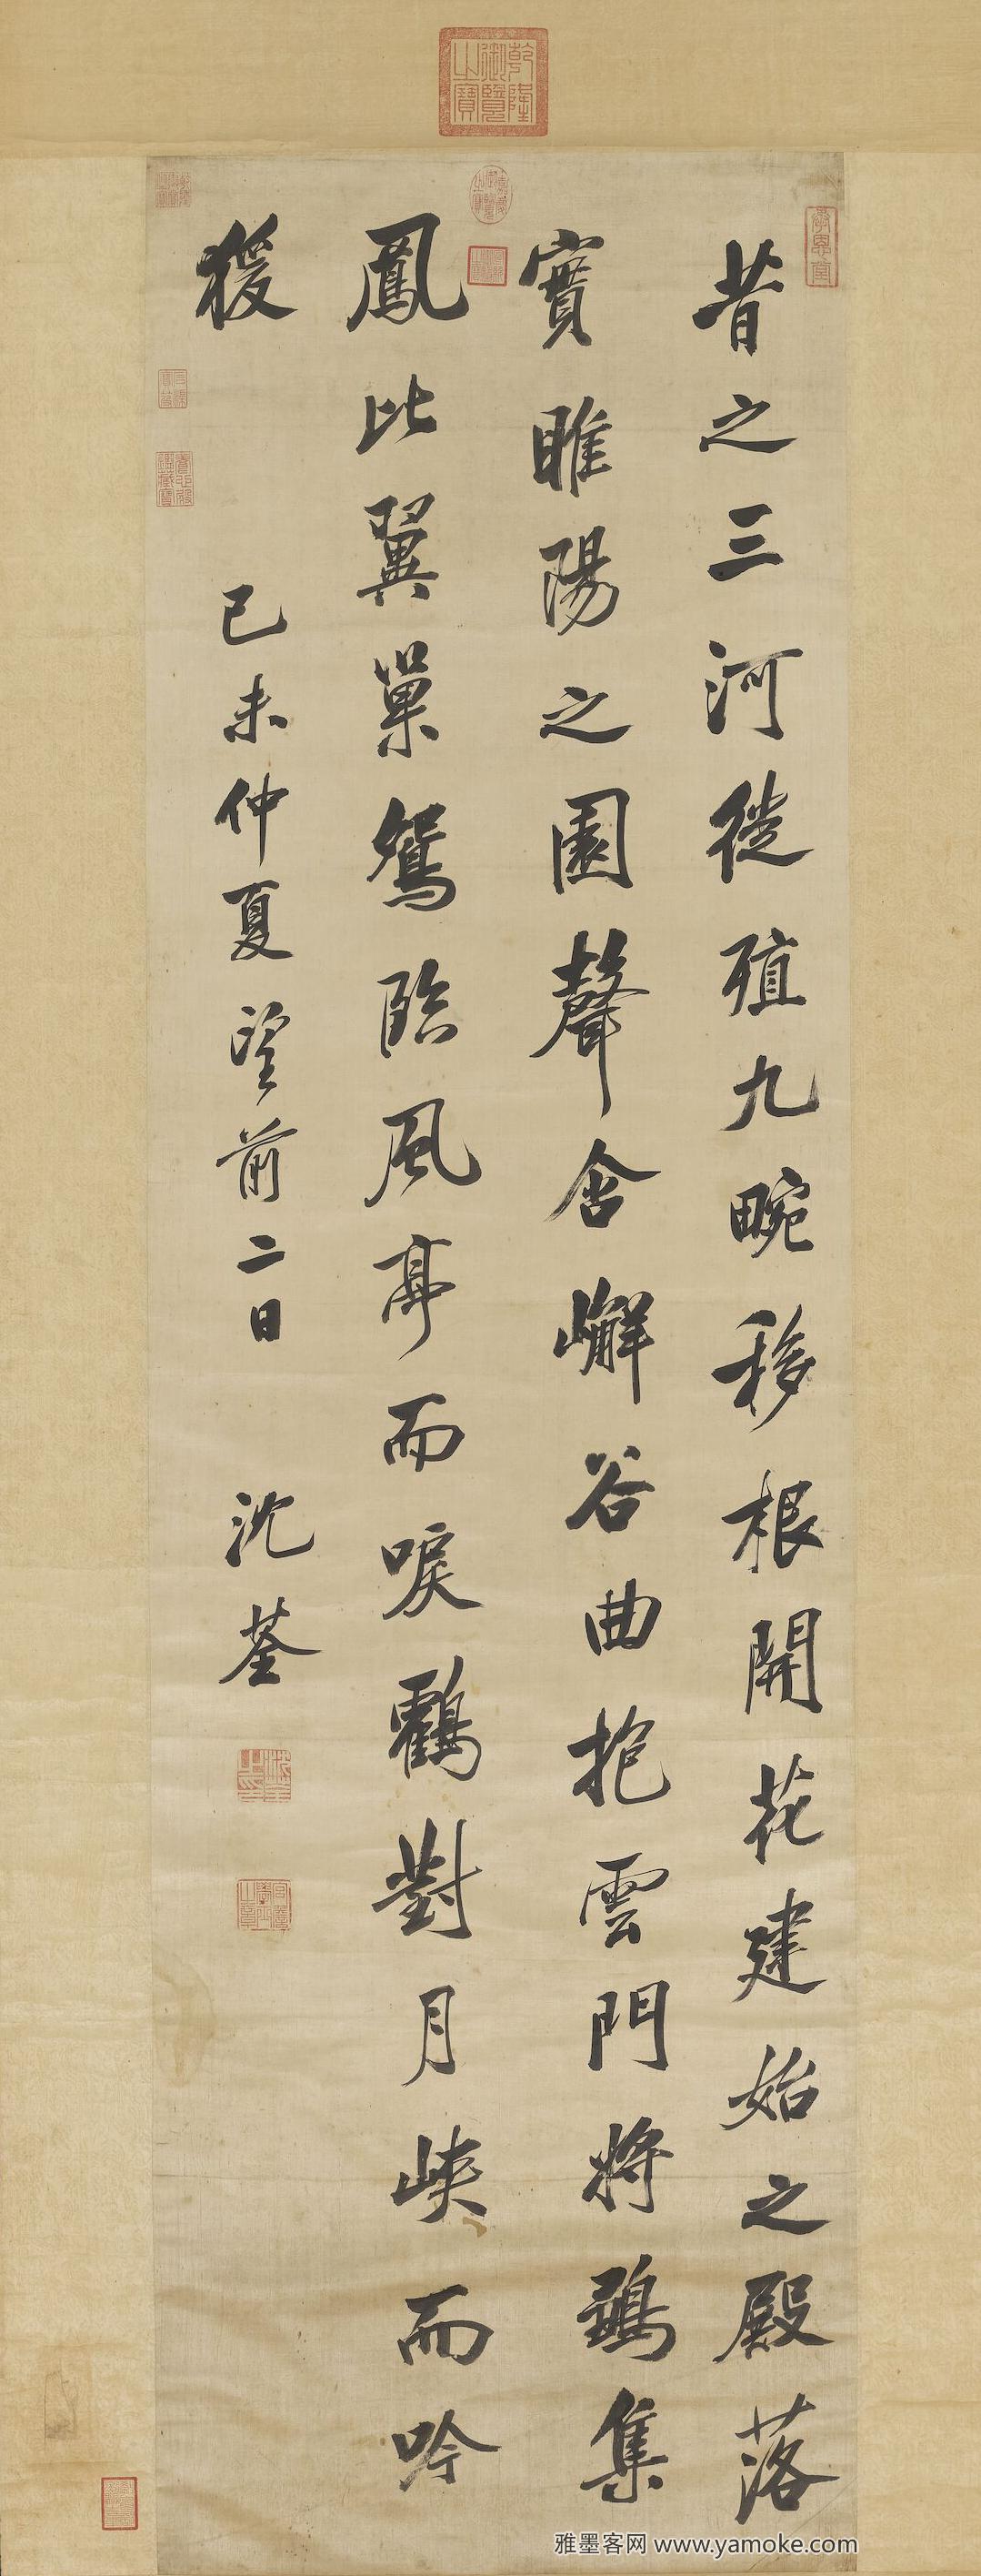 乾隆御覽之寶
昔之三河徙殖九畹移根開花建始之殿落
實睢陽之園聲含嶰谷曲抱雲門將鶵集
鳳比翼巢鴛臨風亭而唳鶴對月峽而吟
猨
己未仲夏望前二日 沈荃
雅墨客网 www.yamoke.com